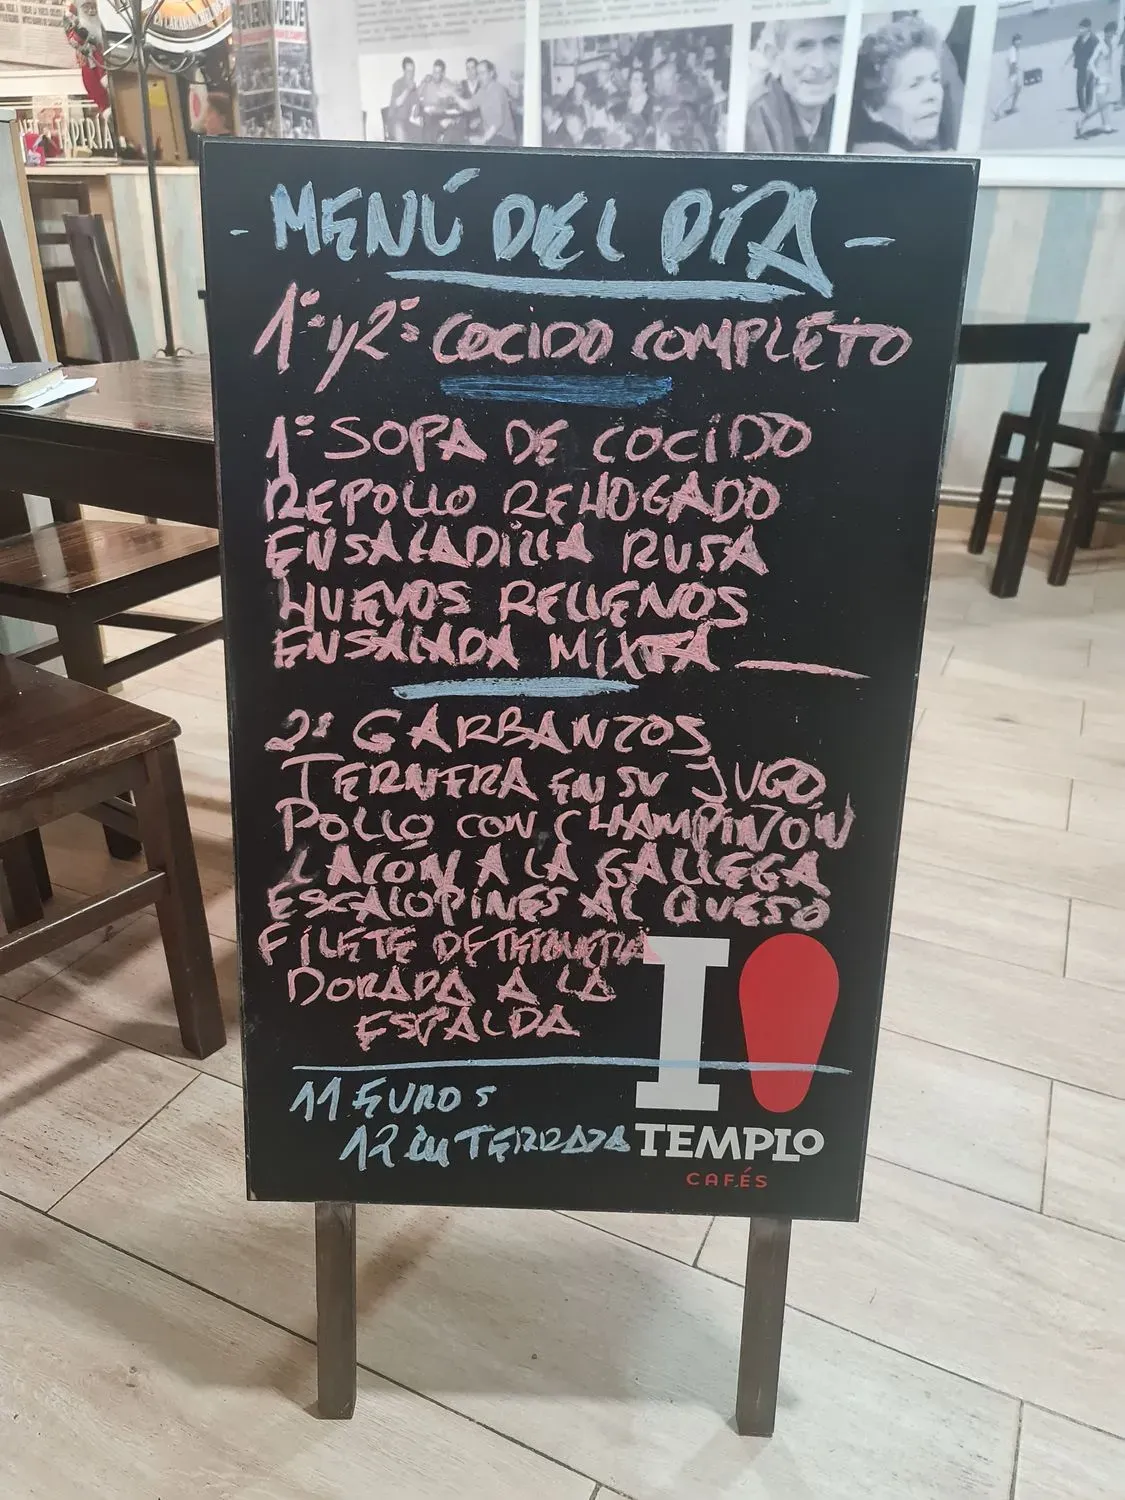 - MENÚ DEL DÍA -
1º y 2º COCIDO COMPLETO
1º SOPA DE COCIDO
REPOLLO REHOGADO
ENSALADILLA RUSA
HUEVOS RELLENOS
ENSALADA MIXTA
2º GARBANZOS
TERNERA EN SU JUGO
POLLO CON CHAMPIÑÓN
LACÓN A LA GALLEGA
ESCALOPINES AL QUESO
FILETE DE TERNERA
DORADA A LA
ESPALDA
11 EUROS
12 en TERRAZA
I
TEMPLO
CAFÉS
TAPERÍA
VUELVE